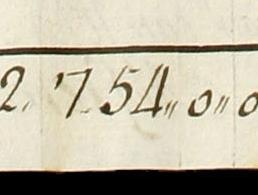 2. 7.54,, 0,, 0